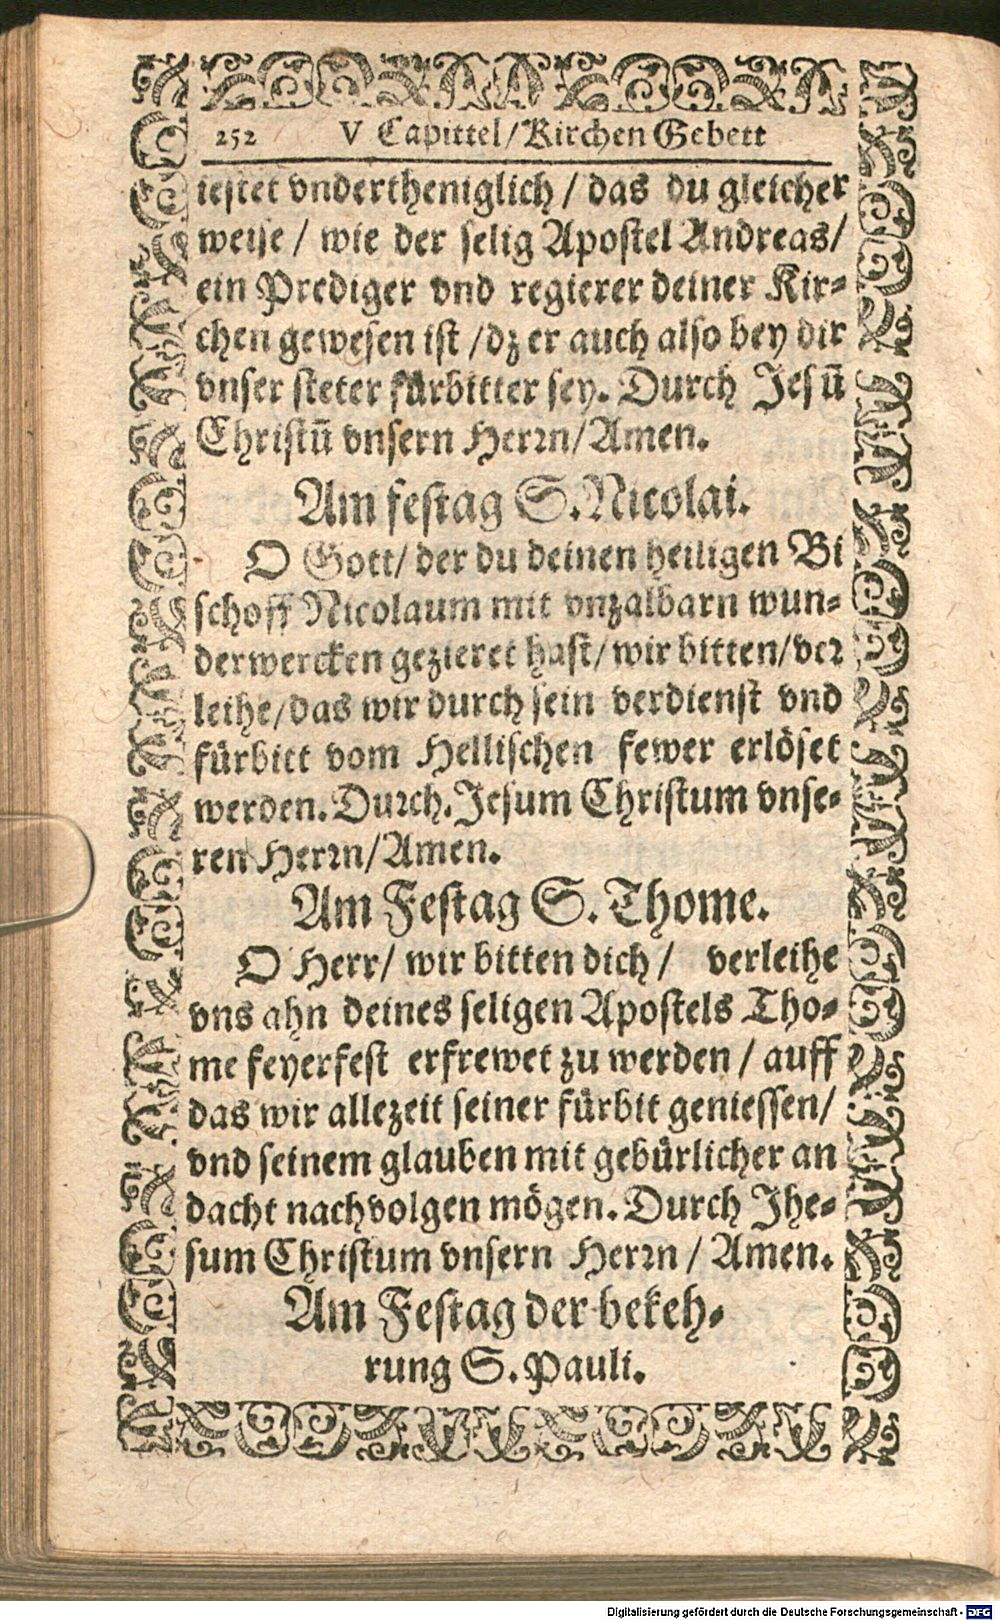 252 V Capittel/Kirchen Gebett
iestet vndertheniglich / das du gleicher
weise / wie der selig Apostel Andreas/
ein Prediger vnd regierer deiner Kir-
chen gewesen ist /dz er auch also bey dir
vnser steter fürbitter sey. Durch Jesū
Christū vnsern Herrn/Amen.
Am festag S. Nicolai.
O Gott/ der du deinen heiligen Bi
schoff Nicolaum mit vnzalbarn wun-
derwercken gezieret hast/wir bitten/ver
leihe/das wir durch sein verdienst vnd
fürbitt vom Hellischen fewer erlöset
werden. Durch. Jesum Christum vnse-
ren Herrn/Amen.
Am Festag S. Thome.
O Herr/ wir bitten dich / verleihe
vns ahn deines seligen Apostels Tho-
me feyerfest erfrewet zu werden / auff
das wir allezeit seiner fürbit geniessen/
vnd seinem glauben mit gebürlicher an
dacht nachvolgen mögen. Durch Jhe-
sum Christum vnsern Herrn / Amen.
Am Festag der bekeh-
rung S. Pauli.
Digitalisierung gefördert durch die Deutsche Forschungsgemeinschaft - DFG